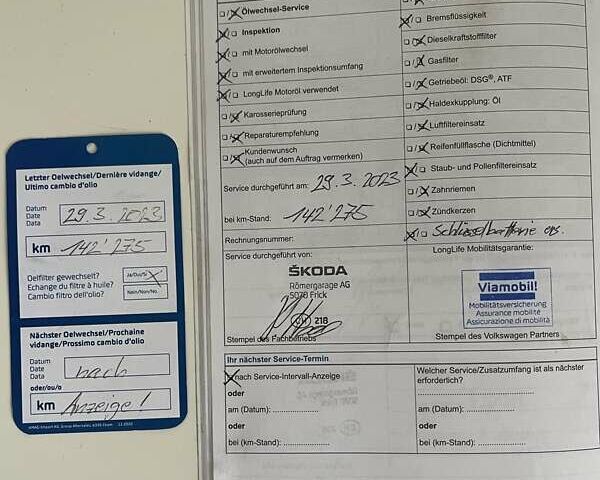 Letzter Oelwechsel/Dernière vidange/
Ultimo cambio d'olio
Datum
Date
Data
29.3.2023
km
142'275
Oelfilter gewechselt?
Echange du filtre à huile?
Cambio filtro dell'olio?
Ja/Oui/Si
Nein/Non/No
Nächster Oelwechsel/Prochaine
vidange/Prossimo cambio d'olio
Datum
Date
Data
nach
oder/ou/o
km
Anzeige!
Ölwechsel-Service
Inspektion
mit Motorölwechsel
mit erweitertem Inspektionsumfang
LongLife Motoröl verwendet
Karosserieprüfung
Reparaturempfehlung
Kundenwunsch
(auch auf dem Auftrag vermerken)
Service durchgeführt am: 29.3.2023
bei km-Stand: 142'275
Rechnungsnummer:
Service durchgeführt von:
ŠKODA
Römergarage AG
5070 Frick
CH 218
Stempel des Fachbetriebs
Bremsflüssigkeit
Dieselkraftstofffilter
Gasfilter
Getriebeöl: DSG®, ATF
Haldexkupplung: Öl
Luftfiltereinsatz
Reifenfüllflasche (Dichtmittel)
Staub- und Pollenfiltereinsatz
Zahnriemen
Zündkerzen
Schlüsselbatterie ers.
LongLife Mobilitätsgarantie:
Viamobil!
Mobilitätsversicherung
Assurance mobilité
Assicurazione di mobilità
Stempel des Volkswagen Partners
Ihr nächster Service-Termin
nach Service-Intervall-Anzeige
oder
am (Datum):
oder
bei (km-Stand):
Welcher Service/Zusatzumfang ist als nächster
erforderlich?
oder
am (Datum):
oder
bei (km-Stand):